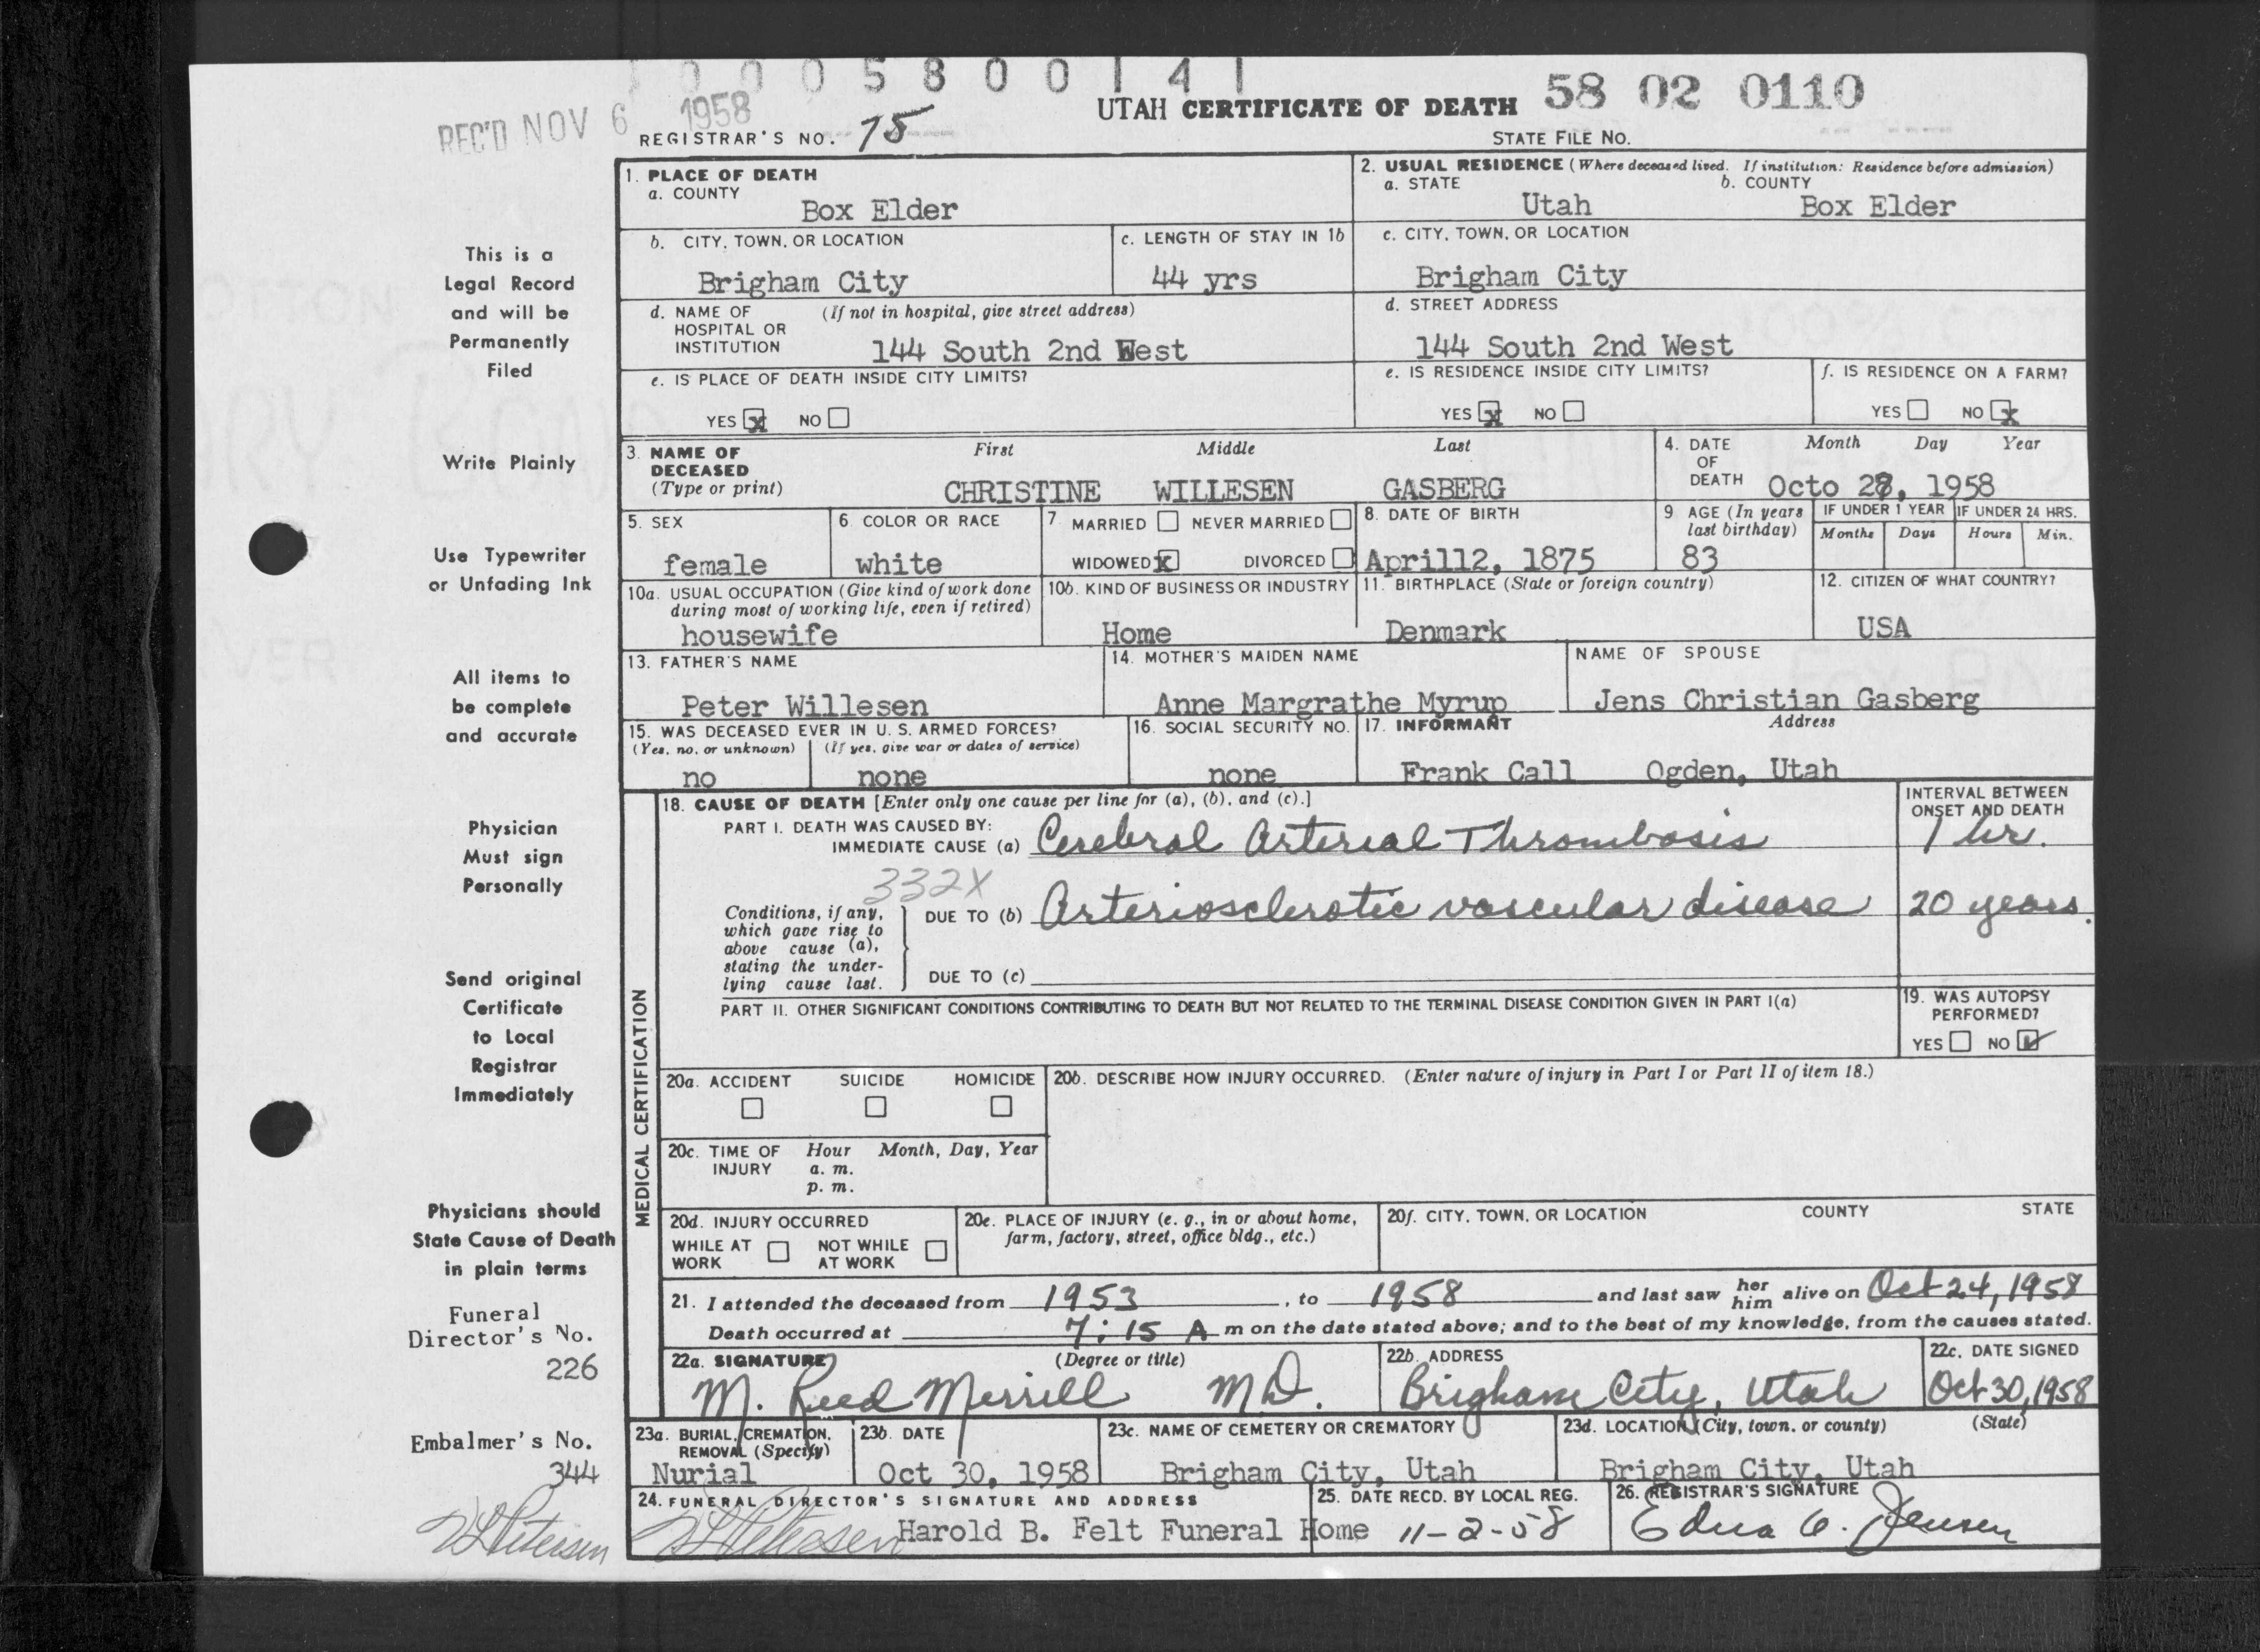 1 0 0 0 5 8 0 0 1 4 1
REC'D NOV 6 1958
UTAH CERTIFICATE OF DEATH 58 02 0110
REGISTRAR'S NO. 75
STATE FILE NO.
1. PLACE OF DEATH
a. COUNTY
Box Elder
2. USUAL RESIDENCE (Where deceased lived. If institution: Residence before admission)
a. STATE b. COUNTY
Utah Box Elder
b. CITY, TOWN, OR LOCATION
Brigham City
c. LENGTH OF STAY IN 1b
44 yrs
c. CITY, TOWN, OR LOCATION
Brigham City
d. NAME OF (If not in hospital, give street address)
HOSPITAL OR
INSTITUTION 144 South 2nd West
d. STREET ADDRESS
144 South 2nd West
e. IS PLACE OF DEATH INSIDE CITY LIMITS?
YES x NO
e. IS RESIDENCE INSIDE CITY LIMITS?
YES x NO
f. IS RESIDENCE ON A FARM?
YES NO x
3. NAME OF First Middle Last
DECEASED
(Type or print) CHRISTINE WILLESEN GASBERG
4. DATE Month Day Year
OF
DEATH Octo 28, 1958
5. SEX
female
6. COLOR OR RACE
white
7. MARRIED NEVER MARRIED
WIDOWED x DIVORCED
8. DATE OF BIRTH
April12, 1875
9. AGE (In years
last birthday)
83
IF UNDER 1 YEAR
Months Days
IF UNDER 24 HRS.
Hours Min.
10a. USUAL OCCUPATION (Give kind of work done
during most of working life, even if retired)
housewife
10b. KIND OF BUSINESS OR INDUSTRY
Home
11. BIRTHPLACE (State or foreign country)
Denmark
12. CITIZEN OF WHAT COUNTRY?
USA
13. FATHER'S NAME
Peter Willesen
14. MOTHER'S MAIDEN NAME
Anne Margrathe Myrup
NAME OF SPOUSE
Jens Christian Gasberg
15. WAS DECEASED EVER IN U. S. ARMED FORCES?
(Yes, no, or unknown) (If yes, give war or dates of service)
no none
16. SOCIAL SECURITY NO.
none
17. INFORMANT Address
Frank Call Ogden, Utah
MEDICAL CERTIFICATION
18. CAUSE OF DEATH [Enter only one cause per line for (a), (b), and (c).]
INTERVAL BETWEEN
ONSET AND DEATH
PART I. DEATH WAS CAUSED BY:
IMMEDIATE CAUSE (a) Cerebral Arterial Thrombosis 1 hr.
332X
Conditions, if any,
which gave rise to
above cause (a),
stating the under-
lying cause last.
DUE TO (b) Arteriosclerotic vascular disease 20 years.
DUE TO (c)
PART II. OTHER SIGNIFICANT CONDITIONS CONTRIBUTING TO DEATH BUT NOT RELATED TO THE TERMINAL DISEASE CONDITION GIVEN IN PART I(a)
19. WAS AUTOPSY
PERFORMED?
YES NO ✓
20a. ACCIDENT SUICIDE HOMICIDE
20b. DESCRIBE HOW INJURY OCCURRED. (Enter nature of injury in Part I or Part II of item 18.)
20c. TIME OF Hour Month, Day, Year
INJURY a. m.
p. m.
20d. INJURY OCCURRED
WHILE AT NOT WHILE
WORK AT WORK
20e. PLACE OF INJURY (e. g., in or about home,
farm, factory, street, office bldg., etc.)
20f. CITY, TOWN, OR LOCATION COUNTY STATE
21. I attended the deceased from 1953, to 1958 and last saw her him alive on Oct 24, 1958
Death occurred at 7:15 A m on the date stated above; and to the best of my knowledge, from the causes stated.
22a. SIGNATURE (Degree or title)
M. Reed Merrill MD.
22b. ADDRESS
Brigham City, Utah
22c. DATE SIGNED
Oct 30, 1958
23a. BURIAL, CREMATION,
REMOVAL (Specify)
Nurial
23b. DATE
Oct 30, 1958
23c. NAME OF CEMETERY OR CREMATORY
Brigham City, Utah
23d. LOCATION (City, town, or county) (State)
Brigham City, Utah
24. FUNERAL DIRECTOR'S SIGNATURE AND ADDRESS
Harold B. Felt Funeral Home
25. DATE RECD. BY LOCAL REG.
11-2-58
26. REGISTRAR'S SIGNATURE
Edna C. Jensen
This is a
Legal Record
and will be
Permanently
Filed
Write Plainly
Use Typewriter
or Unfading Ink
All items to
be complete
and accurate
Physician
Must sign
Personally
Send original
Certificate
to Local
Registrar
Immediately
Physicians should
State Cause of Death
in plain terms
Funeral
Director's No.
226
Embalmer's No.
344